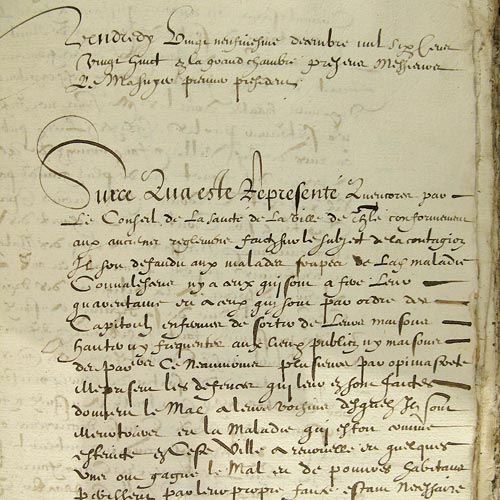 Vendredy Vingt neufviesme decembre mil six Cens
Vingt huict En la grand chambre presens Messieurs
Le Masuyer premier president
Sur ce Qua este Represente Quencores par
Le Conseil de La sancte de La Ville de Thle conformement
aux anciens reglemens faictz sur le subject de la contagion
Il soit defandu aux malades frapes de La maladie
Convalescens ny a ceux quj sont a fere Leur
quarantaine ou a ceux quj sont par ordre des
Capitoulz enfermes de sortir de Leurs maisons
hanter ny frequenter aux lieux publicz ny maisons
des par Ce Neanmoins plusieurs par opiniastrete
mesprisent les defences quj leur en sont faictes
donnent le Mal a leurs voisins desquelz Ilz sont
en La Maladie quj estoit comme
esteincte En Ceste Ville a renouvelle en quelques
Uns ont gagne le Mal et de pouvres habitans
par leur propre faute estant Necessaire